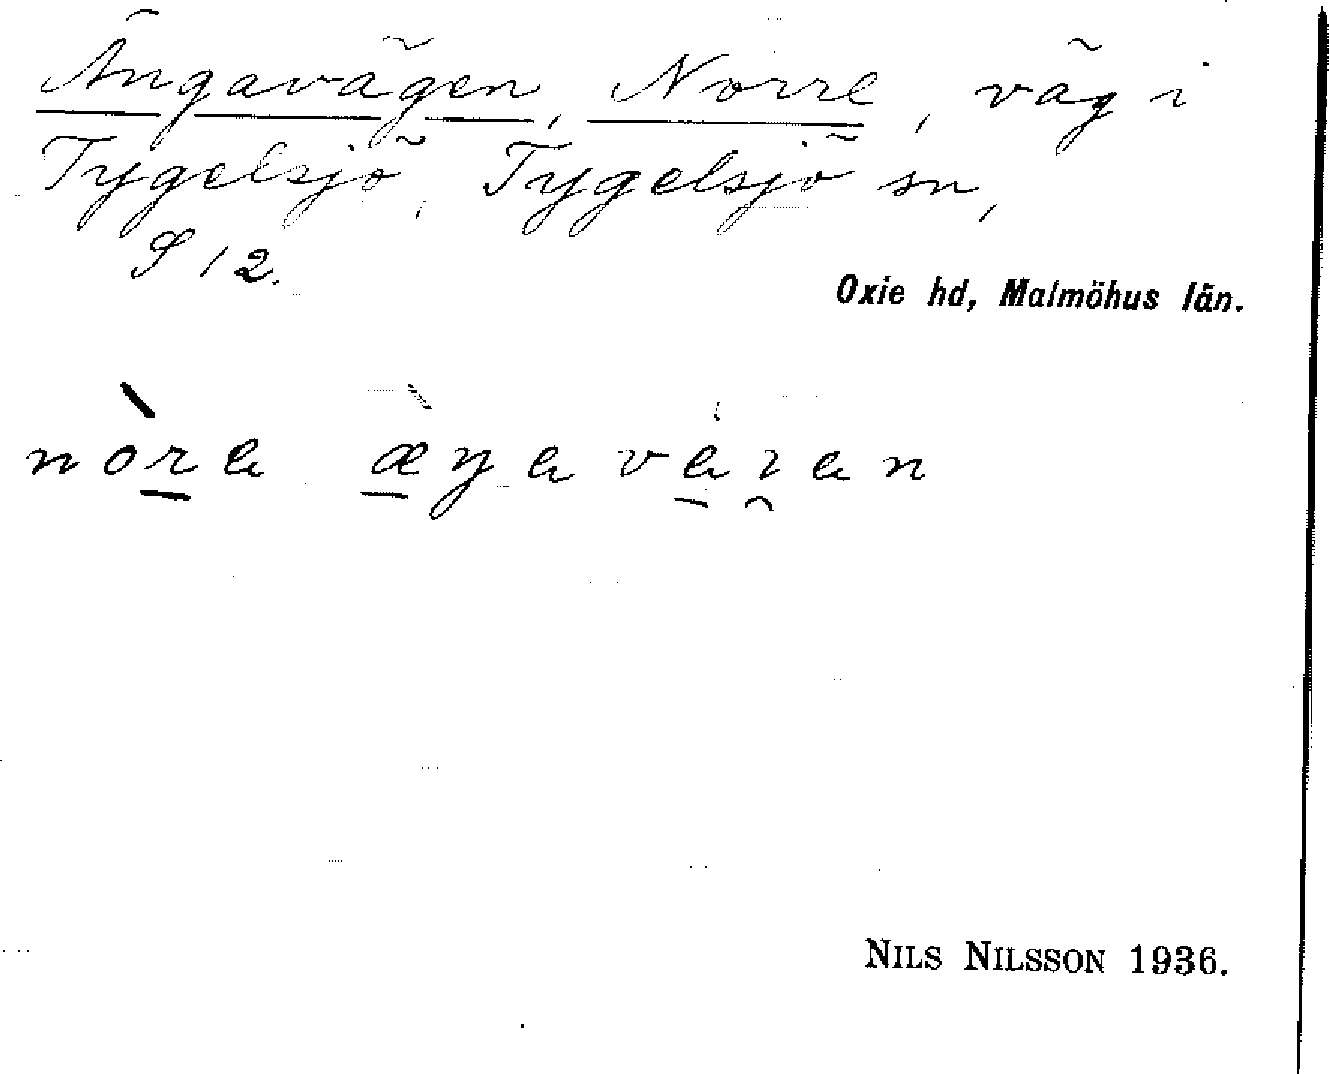 Ängavägen, Norre, väg i
Tygelsjö, Tygelsjö sn,
S 12.
Oxie hd, Malmöhus län.
NILS NILSSON 1936.